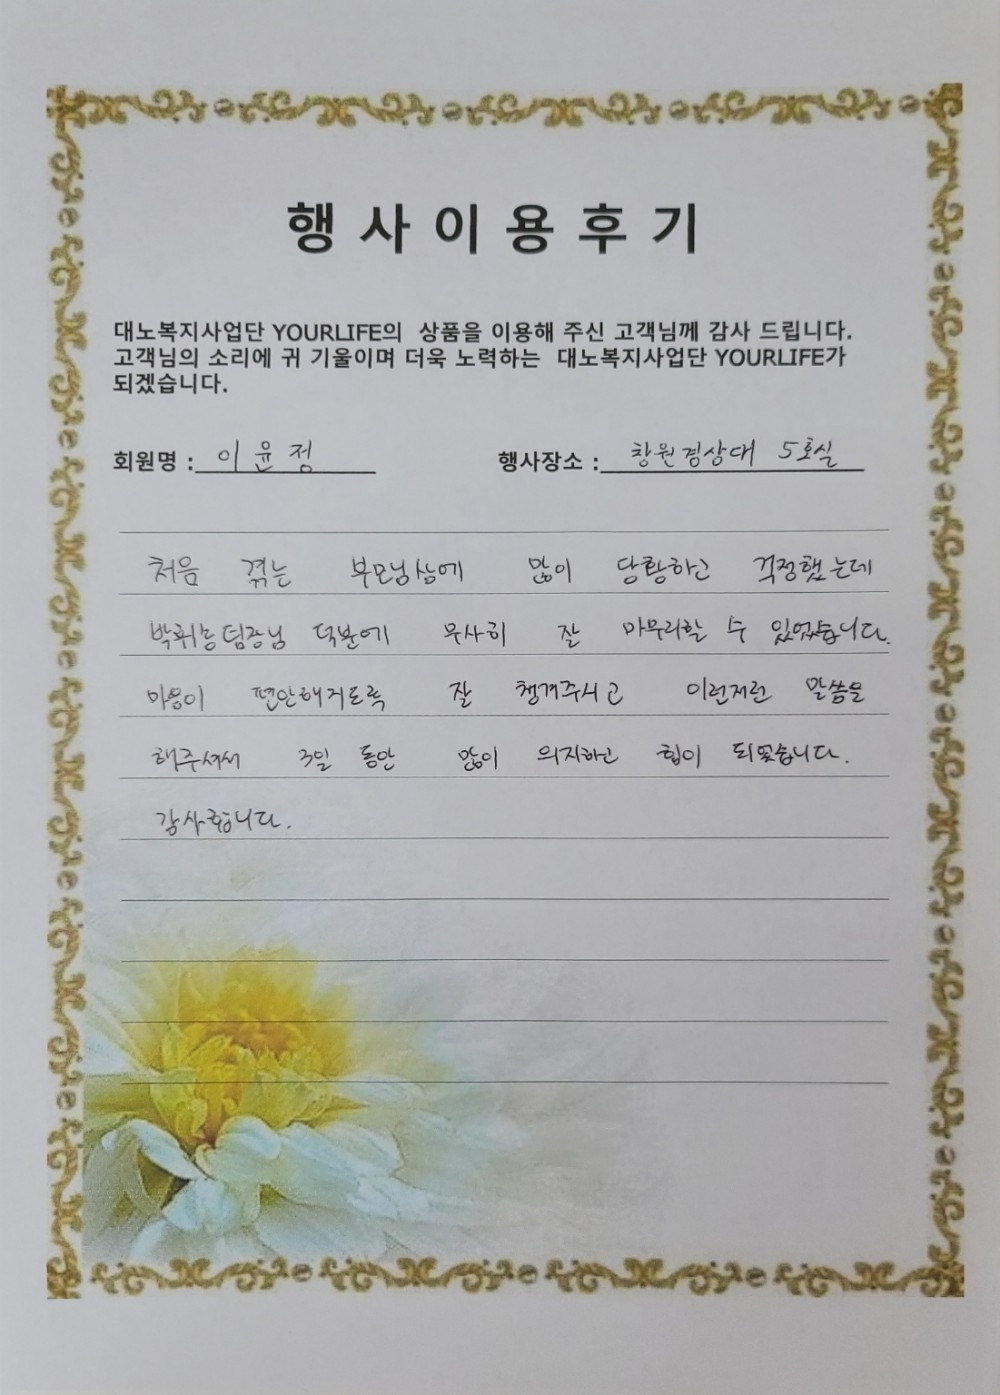 행사이용후기
대노복지사업단 YOURLIFE의 상품을 이용해 주신 고객님께 감사 드립니다.
고객님의 소리에 귀 기울이며 더욱 노력하는 대노복지사업단 YOURLIFE가
되겠습니다.
회원명 : 이윤정 행사장소 : 창원경상대 5호실
처음 겪는 부모님상에 많이 당황하고 걱정했는데
팀장님 덕분에 무사히 잘 마무리할 수 있었습니다.
마음이 편안해지도록 잘 챙겨주시고 이런저런 말씀을
해주셔서 3일 동안 많이 의지하고 힘이 되었습니다.
감사합니다.